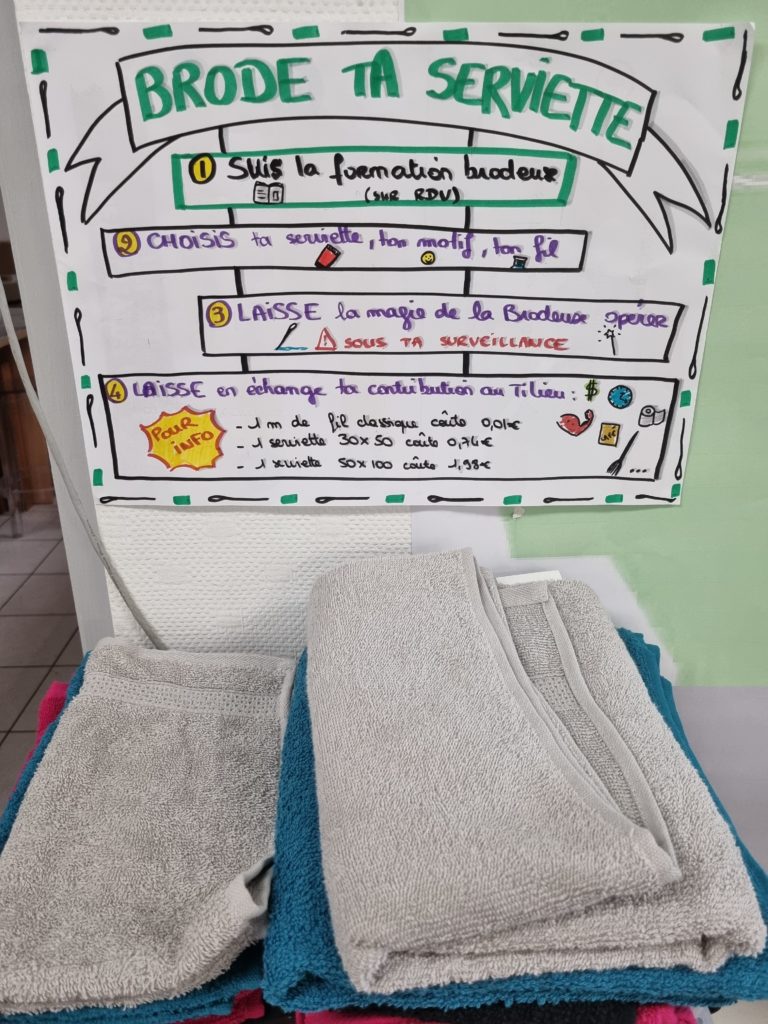 BRODE TA SERVIETTE
1 SUIS la formation brodeuse
(SUR RDV)
2 CHOISIS ta serviette, ton motif, ton fil
3 LAISSE la magie de la Brodeuse opérer
⚠ SOUS TA SURVEILLANCE
4 LAISSE en échange ta contribution au Tilieu : $
POUR INFO
- 1 m de fil classique coûte 0,01€
- 1 serviette 30x50 coûte 0,74€
- 1 serviette 50x100 coûte 1,98€
CAFÉ
...